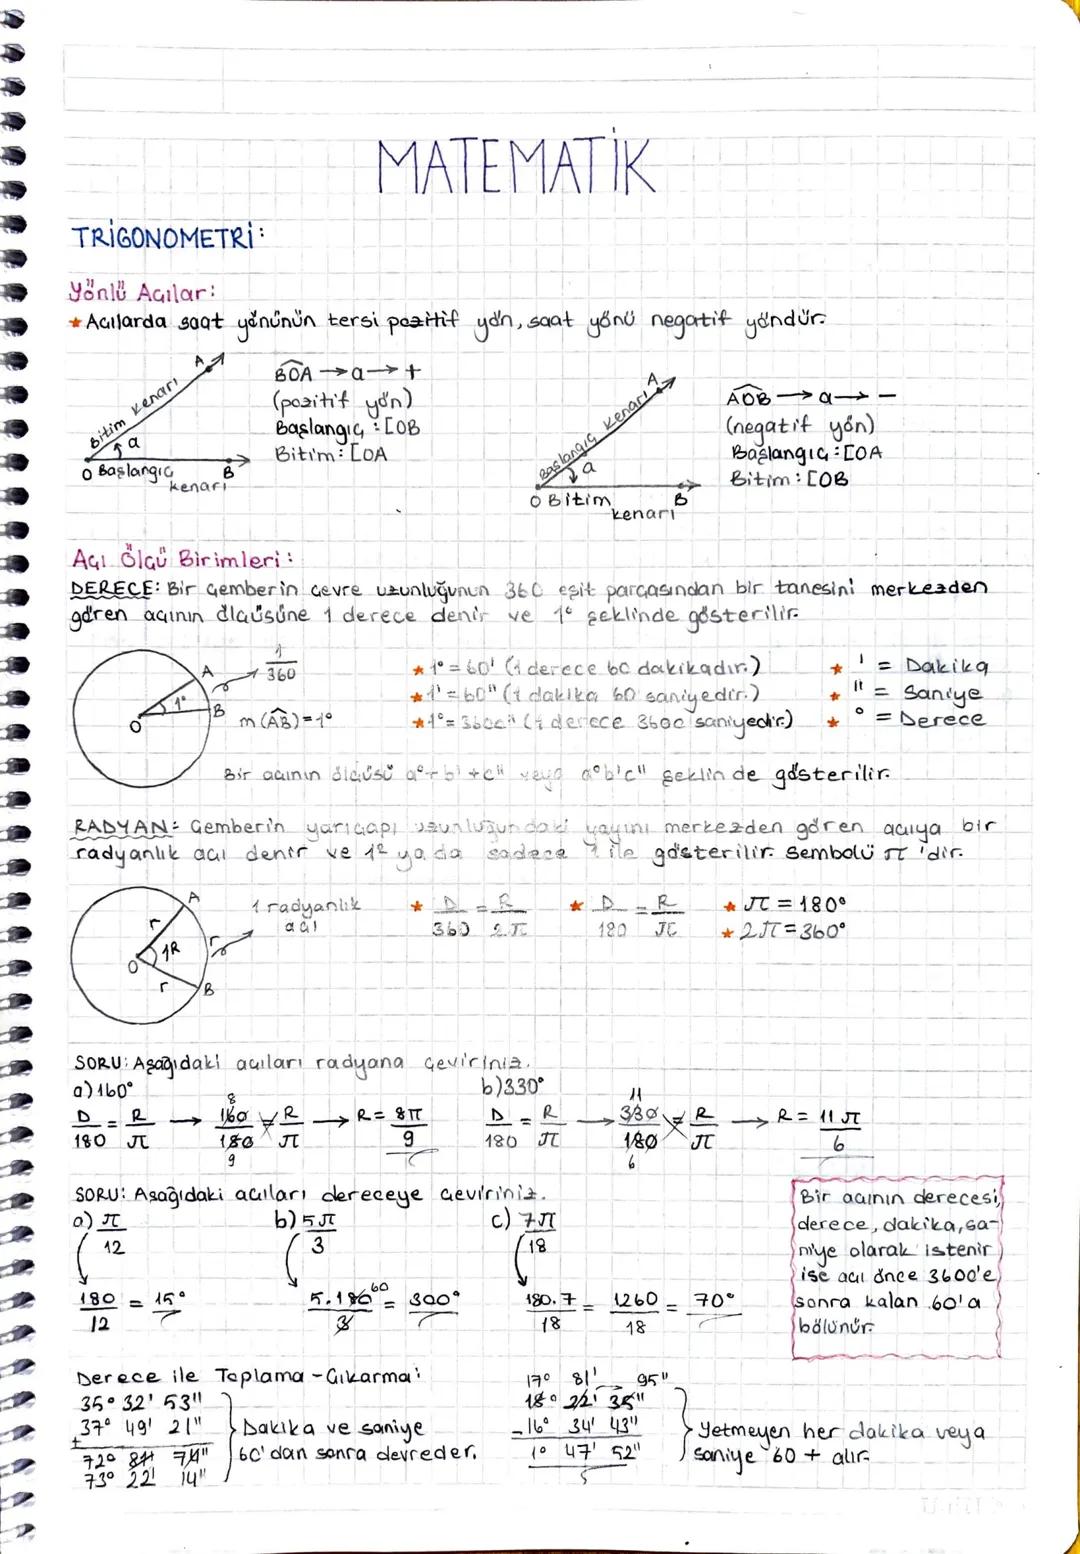 MATEMATİK
TRİGONOMETRİ:
Yönlü Açılar:
★ Açılarda saat yönünün tersi pozitif yön, saat yönü negatif yöndür.
A
Bitim kenarı
a
O Başlangıç kenarı B
BOA → a → +
(pozitif yön)
Başlangıç : [OB
Bitim : [OA
A
Başlangıç kenarı
a
O Bitim kenarı B
AOB → a → −
(negatif yön)
Başlangıç : [OA
Bitim : [OB
Açı Ölçü Birimleri :
DERECE: Bir çemberin çevre uzunluğunun 360 eşit parçasından bir tanesini merkezden
gören açının ölçüsüne 1 derece denir ve 1° şeklinde gösterilir.
A
1/360
O 1° B
m(AB) = 1°
★ 1° = 60' (1 derece 60 dakikadır.)
★ 1' = 60" (1 dakika 60 saniyedir.)
★ 1° = 3600" (1 derece 3600 saniyedir.)
★ ' = Dakika
★ " = Saniye
★ ° = Derece
Bir açının ölçüsü a°+b'+c" veya a°b'c" şeklinde gösterilir.
RADYAN: Çemberin yarıçapı uzunluğundaki yayını merkezden gören açıya bir
radyanlık açı denir ve 1R ya da sadece 1 ile gösterilir. Sembolü π 'dir.
A
r
O 1R r
r
B
1 radyanlık
açı
★ D/360 = R/2π
★ D/180 = R/π
★ π = 180°
★ 2π = 360°
SORU: Aşağıdaki açıları radyana çeviriniz.
a) 160°
D/180 = R/π → 160/180 = R/π → R = 8π/9
8
9
b) 330°
D/180 = R/π → 330/180 = R/π → R = 11π/6
11
6
SORU: Aşağıdaki açıları dereceye çeviriniz.
a) π/12
180/12 = 15°
b) 5π/3
5.180/3 = 300°
60
c) 7π/18
180.7/18 = 1260/18 = 70°
Bir açının derecesi,
derece, dakika, sa-
niye olarak istenir
ise açı önce 3600'e
sonra kalan 60'a
bölünür.
Derece ile Toplama - Çıkarma:
35° 32' 53"
37° 49' 21"
+
72° 81' 74"
73° 22' 14"
Dakika ve saniye
60'dan sonra devreder.
17° 81' 95"
18° 22' 35"
- 16° 34' 43"
1° 47' 52"
Yetmeyen her dakika veya
saniye 60 + alır.